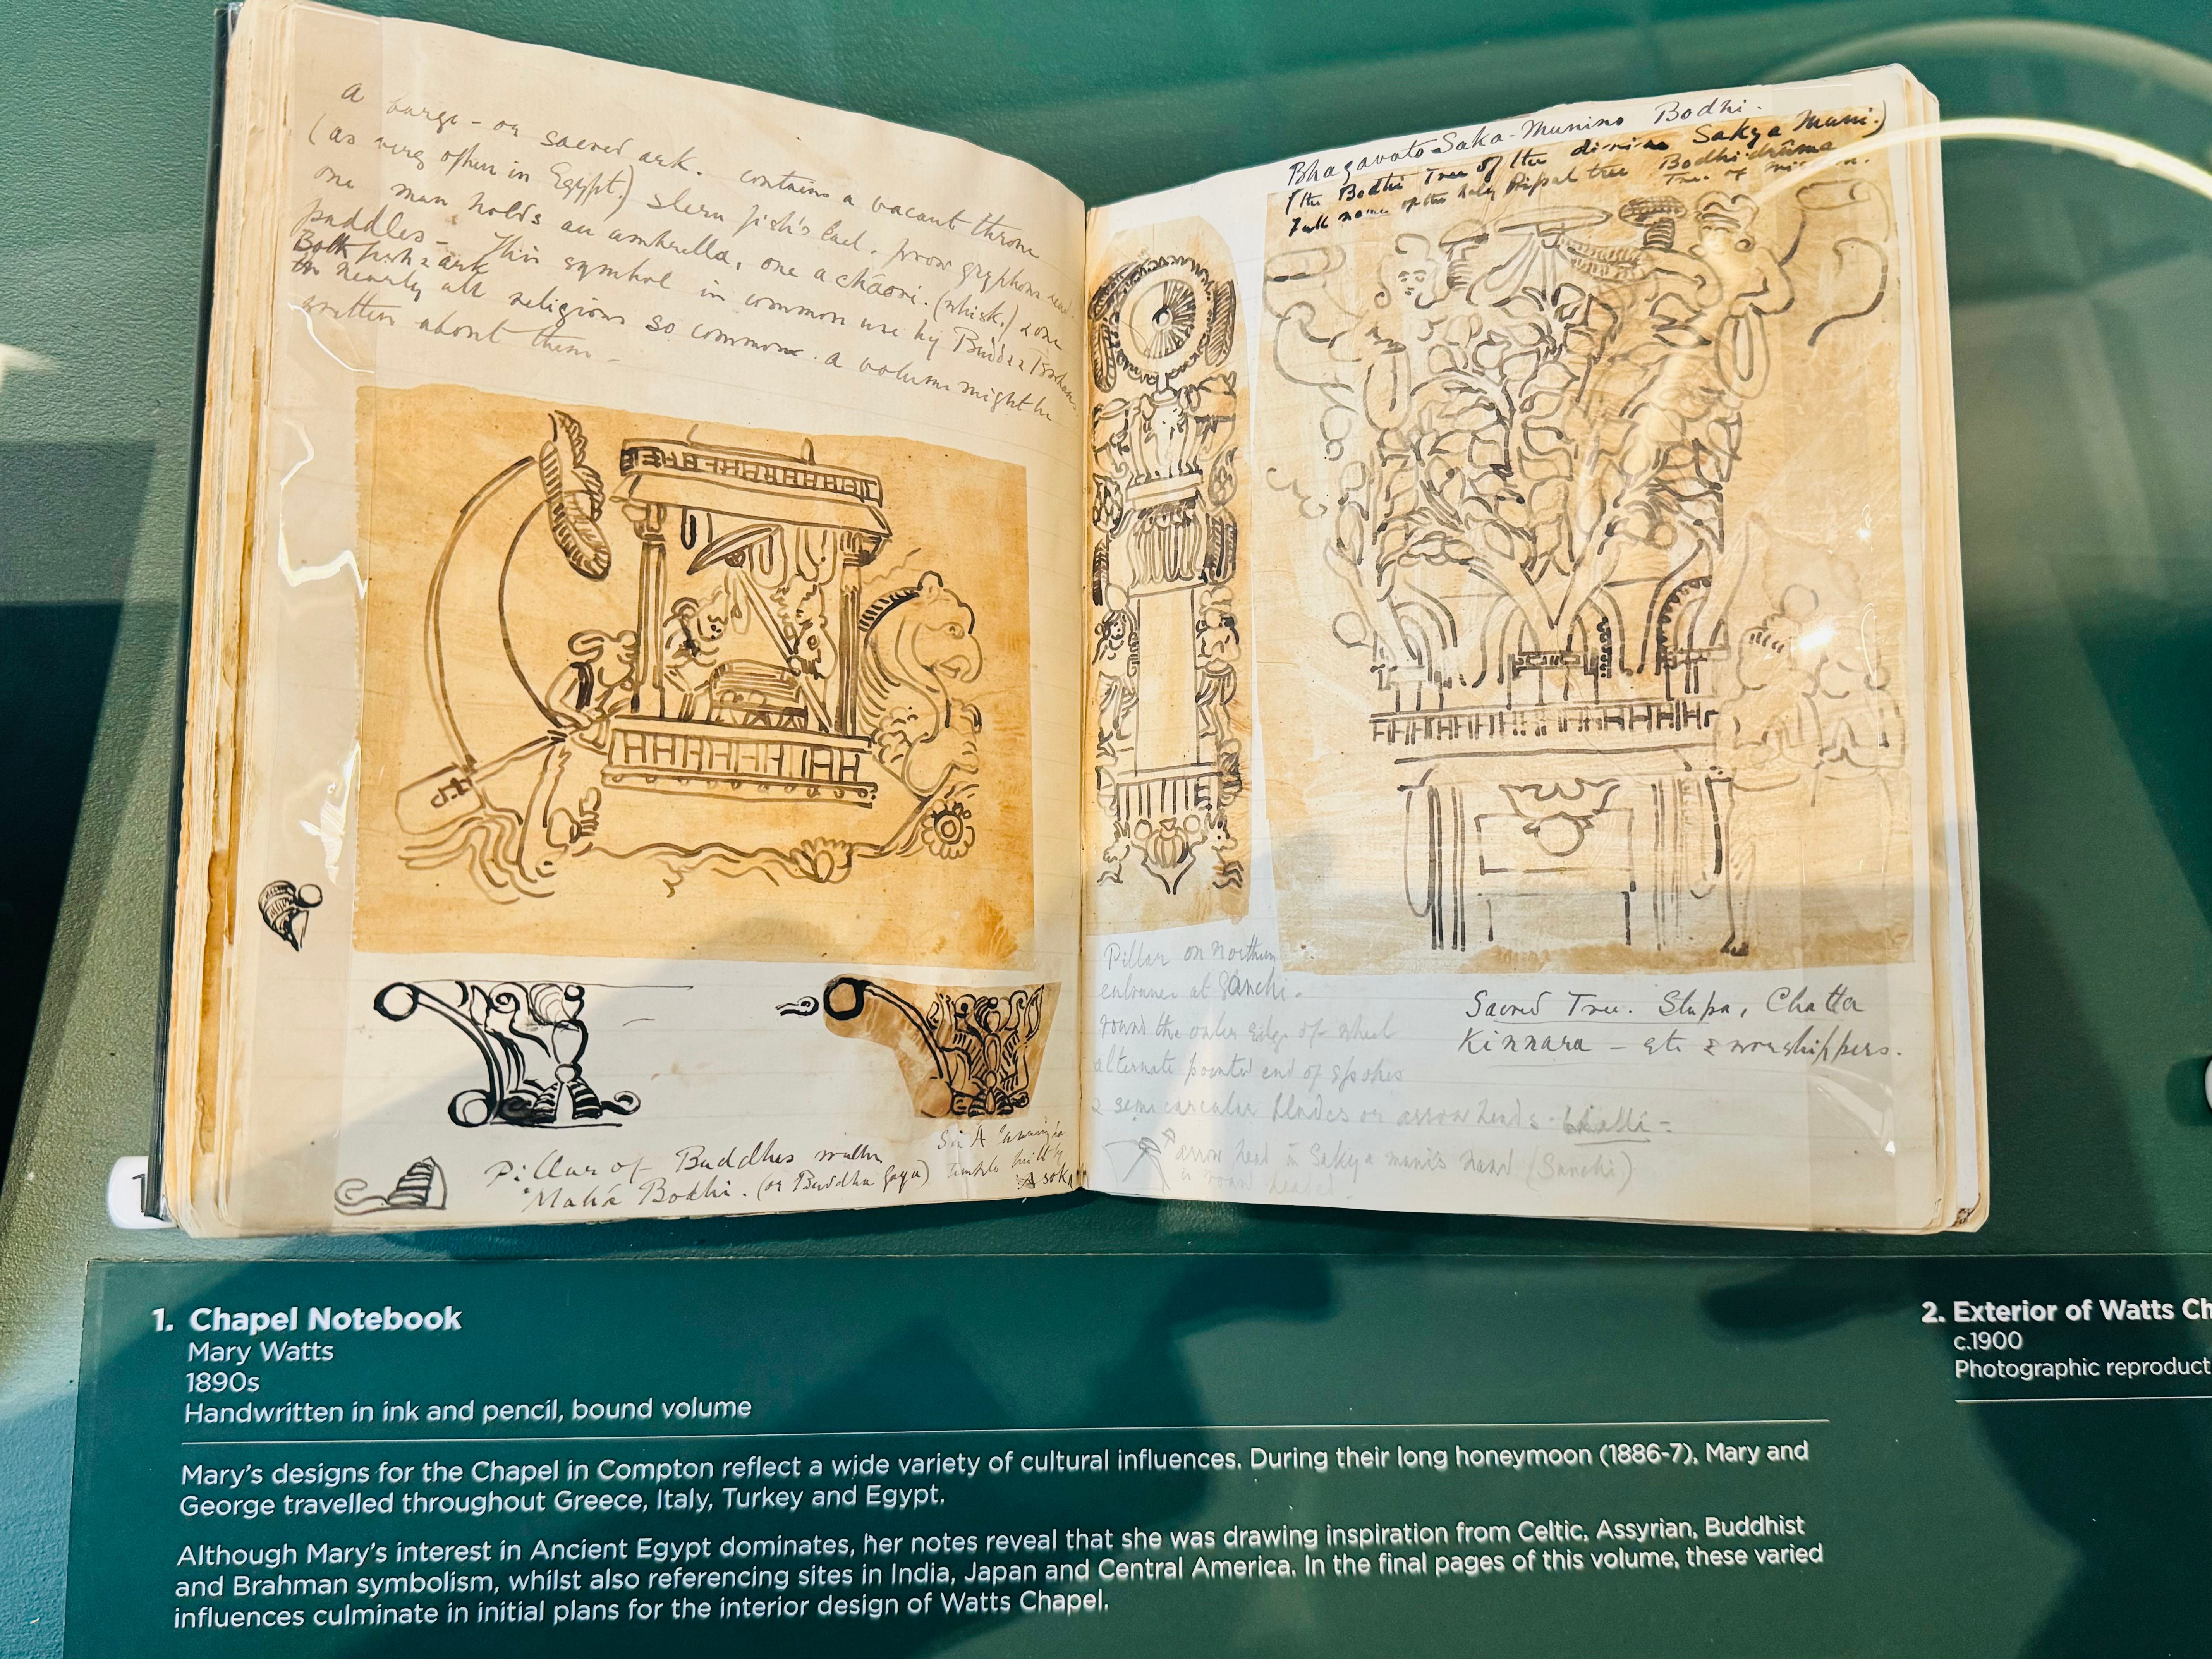 a barge - or sacred ark. contains a vacant throne
(as very often in Egypt.) stern fish's tail. prow gryphons head.
one man holds an umbrella, one a chaori. (whisk.) & one
paddles - This symbol in common use by Budd: &
Both fish & ark
in nearly all religions so common. a volume might be
written about them -
Pillar of Buddhas
Mahá Bodhi. (or Buddha Gaya)
Sir A
temple built by
Asoka
Bhagavato Saka-Munino Bodhi.
(the Bodhi Tree of the divine Sakya Muni.)
Full name of the holy Pipal tree Bodhi-druma
Tree of
Pillar on northern
entrance at Sanchi.
round the outer edge of wheel
alternate pointed end of spokes
& semi circular blades or arrow heads -
arrow head in Sakya muni's hand (Sanchi)
is round headed.
Sacred Tree. Stupa, Chatta
Kinnara - etc & worshippers.
1
1. Chapel Notebook
Mary Watts
1890s
Handwritten in ink and pencil, bound volume
Mary's designs for the Chapel in Compton reflect a wide variety of cultural influences. During their long honeymoon (1886-7), Mary and
George travelled throughout Greece, Italy, Turkey and Egypt.
Although Mary's interest in Ancient Egypt dominates, her notes reveal that she was drawing inspiration from Celtic, Assyrian, Buddhist
and Brahman symbolism, whilst also referencing sites in India, Japan and Central America. In the final pages of this volume, these varied
influences culminate in initial plans for the interior design of Watts Chapel.
2. Exterior of Watts Ch
c.1900
Photographic reproduct